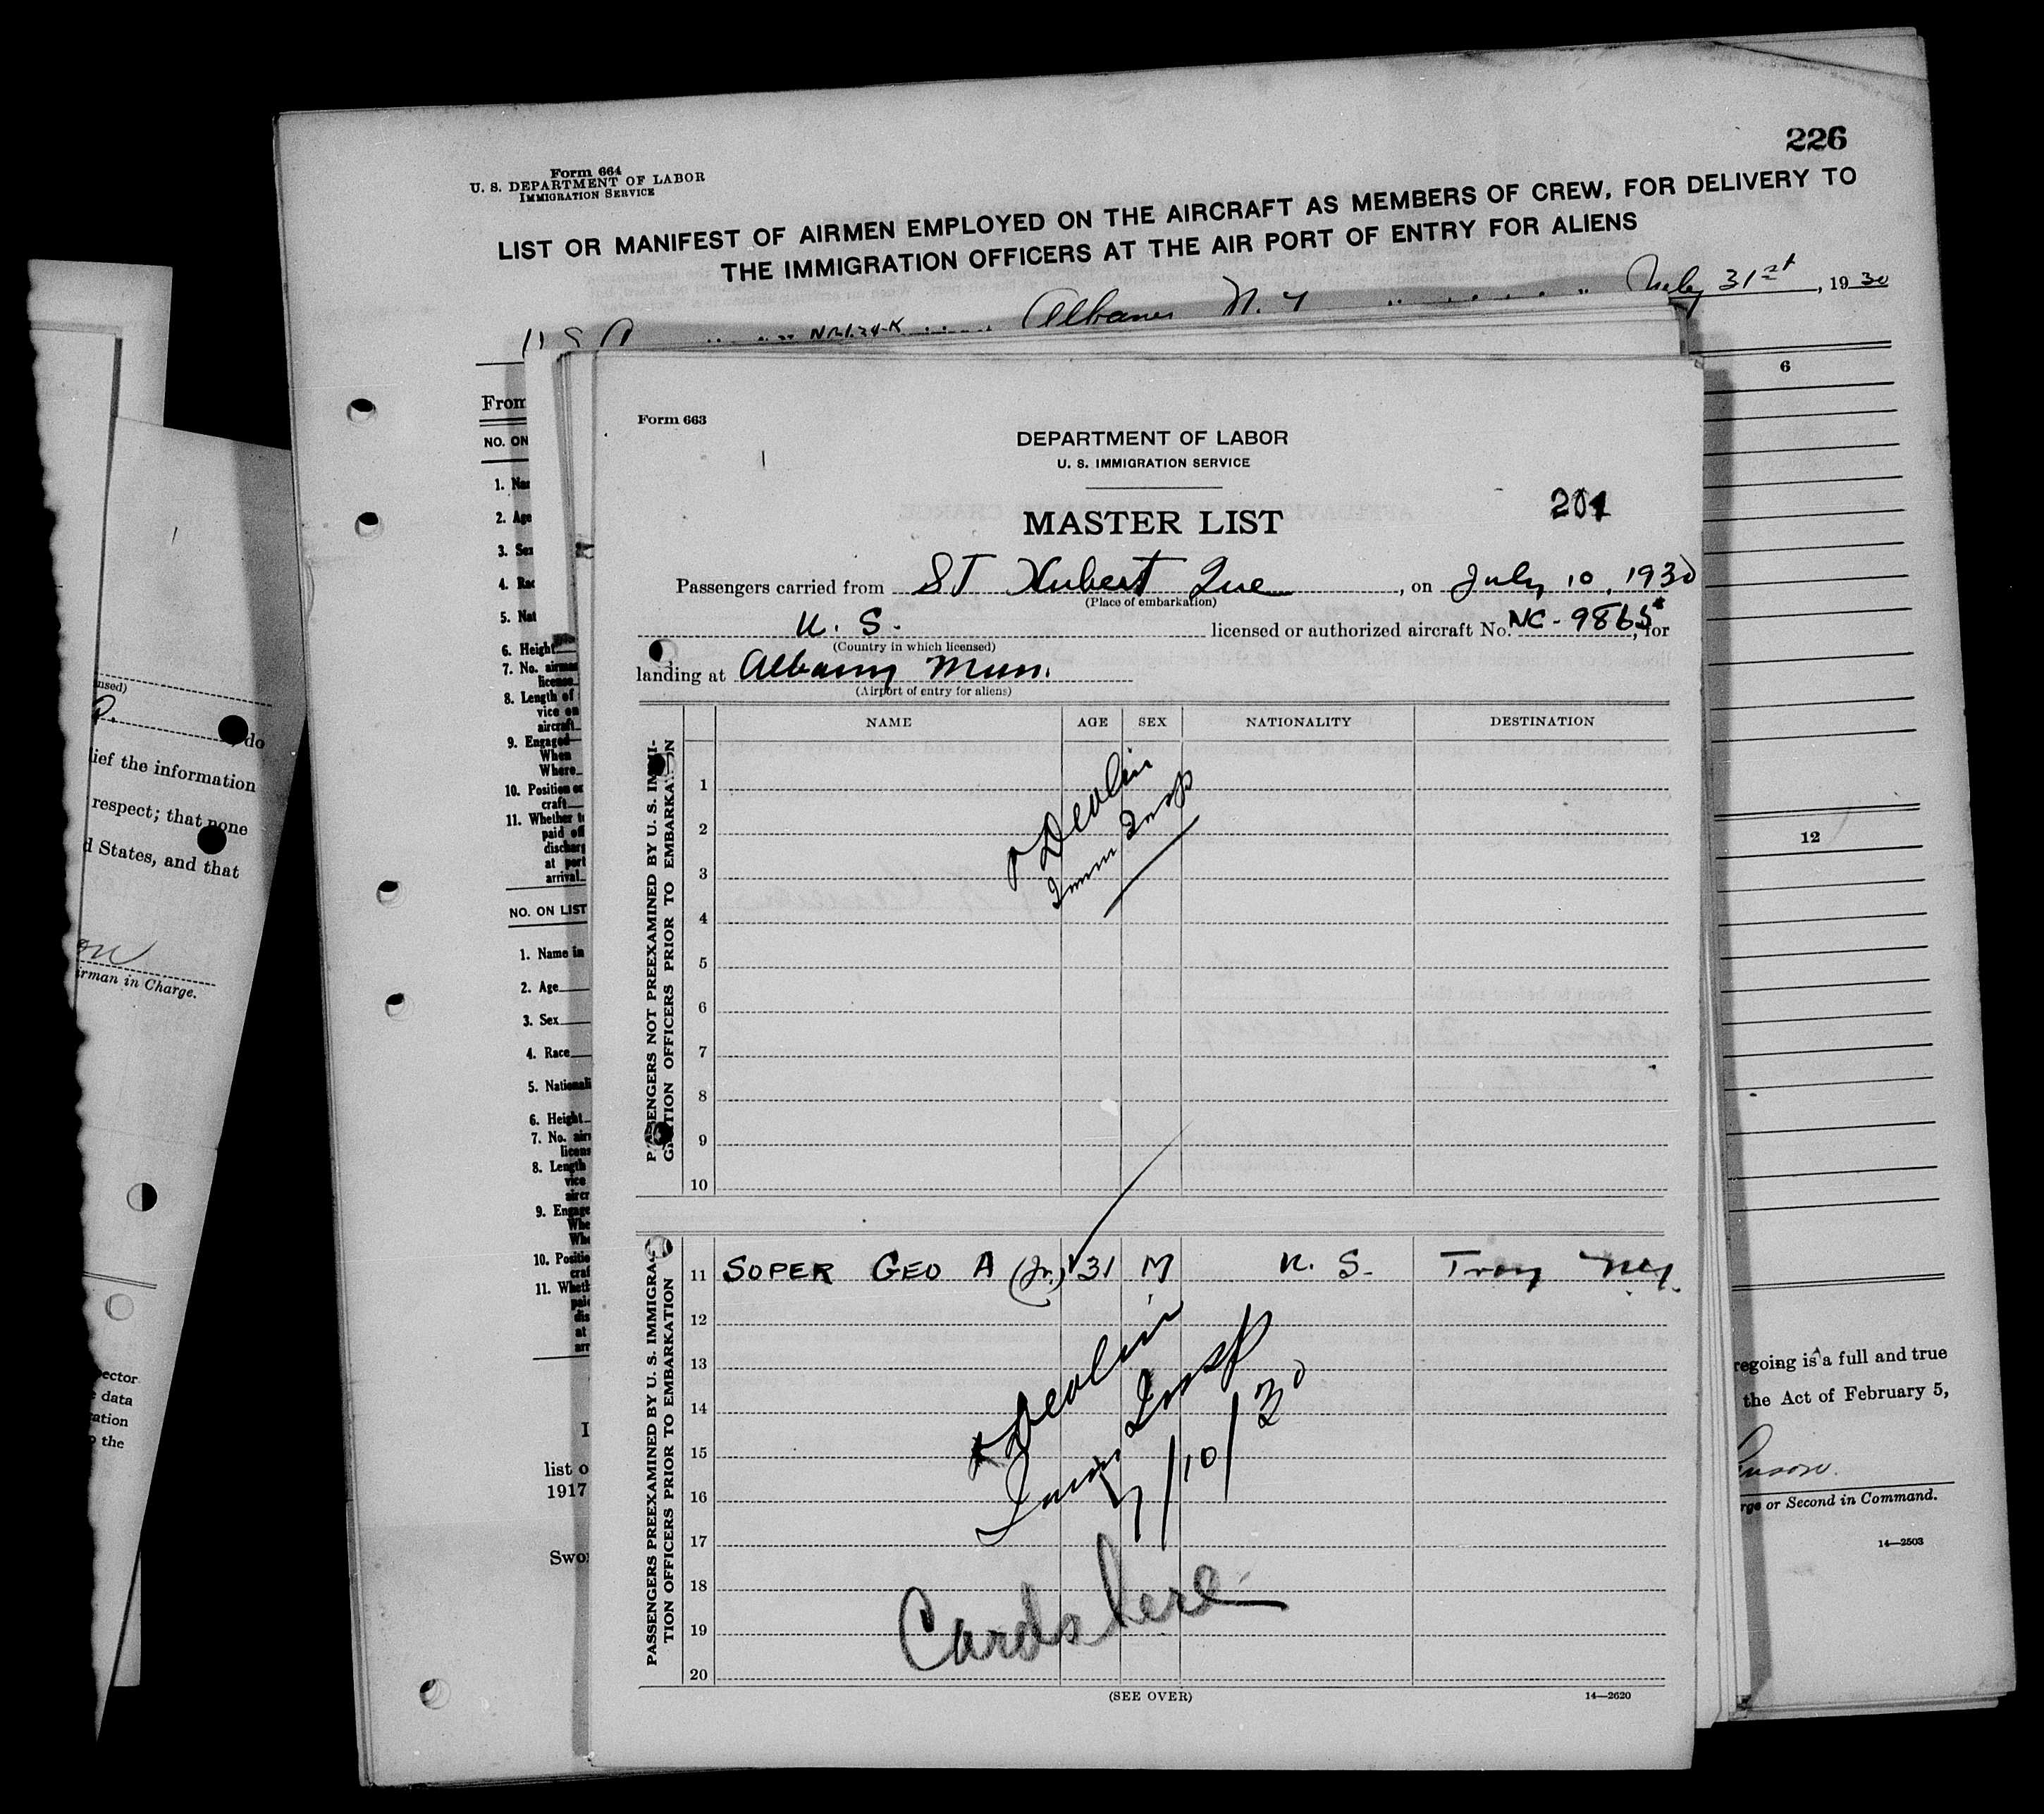 226
Form 664
U. S. DEPARTMENT OF LABOR
IMMIGRATION SERVICE
LIST OR MANIFEST OF AIRMEN EMPLOYED ON THE AIRCRAFT AS MEMBERS OF CREW, FOR DELIVERY TO
THE IMMIGRATION OFFICERS AT THE AIR PORT OF ENTRY FOR ALIENS
Albany N. Y. July 31st, 1930
From
6
NO. ON
1. Na
2. Age
3. Sex
4. Rac
5. Nat
6. Height
7. No. airman
license
8. Length of
vice on
aircraft
9. Engaged
When
Where
10. Position or
craft
11. Whether t
paid off
discharg
at port
arrival
12
NO. ON LIST
1. Name in
2. Age
3. Sex
4. Race
5. Nationali
6. Height
7. No. air
licens
8. Length
vice
aircr
9. Engage
Whe
Whe
10. Positio
craf
11. Wheth
pai
dis
at
arr
list o
1917
Swor
regoing is a full and true
the Act of February 5,
rge or Second in Command.
14—2503
Form 663
DEPARTMENT OF LABOR
U. S. IMMIGRATION SERVICE
MASTER LIST
201
Passengers carried from ST Hubert Que, on July 10, 1930
(Place of embarkation)
U. S. licensed or authorized aircraft No. NC-9865, for
(Country in which licensed)
landing at Albany Mun.
(Airport of entry for aliens)
NAME AGE SEX NATIONALITY DESTINATION
PASSENGERS NOT PREEXAMINED BY U. S. IMMI-
GRATION OFFICERS PRIOR TO EMBARKATION
1
2
3
4
5
6
7
8
9
10
Devlin
Imm Insp
PASSENGERS PREEXAMINED BY U. S. IMMIGRA-
TION OFFICERS PRIOR TO EMBARKATION
11 SOPER GEO A (Jr.) 31 M U. S. Troy N.Y.
12
13
14
15
16
17
18
19
20
Devlin
Imm Insp
7/10/30
Cards here
(SEE OVER)
14—2620
nsed)
do
ief the information
respect; that none
d States, and that
irman in Charge.
pector
data
ation
the